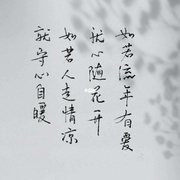 如若流年有爱
就心随花开
如若人走情凉
就守心自暖